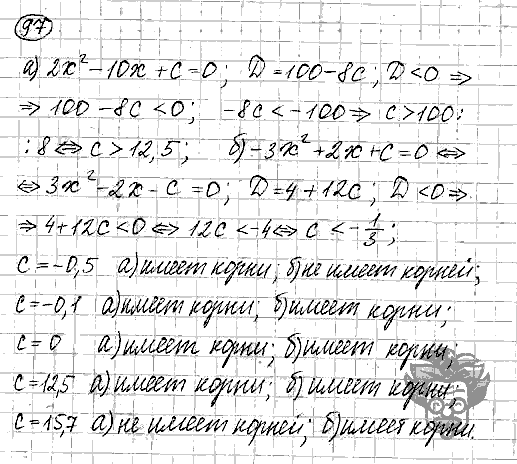 97
а) 2x² – 10x + c = 0; D = 100 – 8c; D < 0 ⇒
⇒ 100 – 8c < 0; –8c < –100 ⇒ c > 100 :
: 8 ⇔ c > 12,5; б) –3x² + 2x + c = 0 ⇔
⇔ 3x² – 2x – c = 0; D = 4 + 12c; D < 0 ⇒
⇒ 4 + 12c < 0 ⇔ 12c < –4 ⇔ c < –1/3;
c = –0,5 а) имеет корни; б) не имеет корней;
c = –0,1 а) имеет корни; б) имеет корни;
c = 0 а) имеет корни; б) имеет корни;
c = 12,5 а) имеет корни; б) имеет корни;
c = 15,7 а) не имеет корней; б) имеет корни.